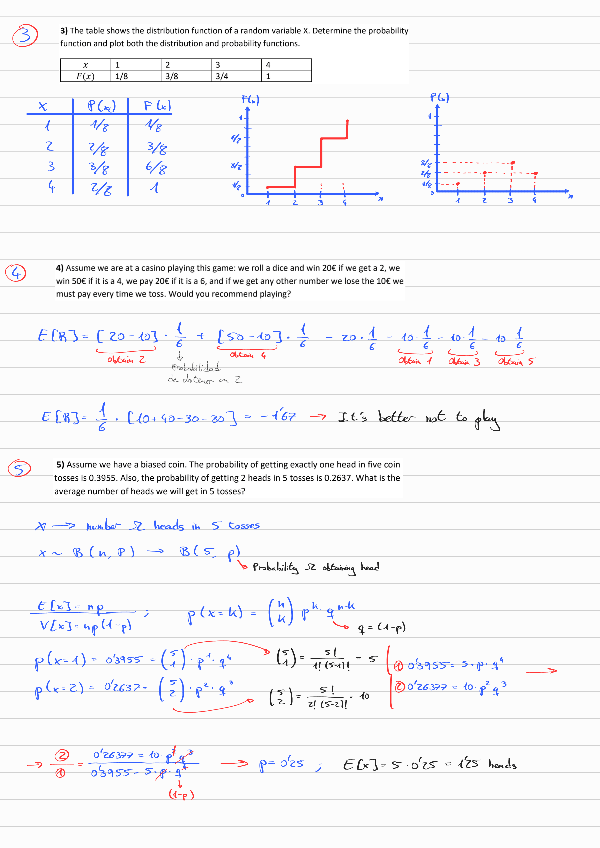 3
3) The table shows the distribution function of a random variable X. Determine the probability
function and plot both the distribution and probability functions.
x 1 2 3 4
F(x) 1/8 3/8 3/4 1
X P(x) F(x)
1 1/8 1/8
2 2/8 3/8
3 3/8 6/8
4 2/8 1
F(x)
1
3/8
1/8
0
1 2 3 4 x
P(x)
1
3/8
2/8
1/8
0
1 2 3 4 x
4
4) Assume we are at a casino playing this game: we roll a dice and win 20€ if we get a 2, we
win 50€ if it is a 4, we pay 20€ if it is a 6, and if we get any other number we lose the 10€ we
must pay every time we toss. Would you recommend playing?
E[B] = [20-10] · 1/6 + [50-10] · 1/6 - 20 · 1/6 - 10 1/6 - 10 · 1/6 - 10 1/6
obtain 2 obtain 4 obtain 1 obtain 3 obtain 5
Probabilidad
de obtener un 2
E[B] = 1/6 · [10+40-30-30] = -1'67 → It's better not to play
5
5) Assume we have a biased coin. The probability of getting exactly one head in five coin
tosses is 0.3955. Also, the probability of getting 2 heads in 5 tosses is 0.2637. What is the
average number of heads we will get in 5 tosses?
X → number Ω heads in 5 tosses
x ~ B(n, P) → B(5, p)
Probability Ω obtaining head
E[x] = np ; P(x=k) = (n k) p^k · q^n-k
V[x] = np(1-p)
q = (1-p)
P(x=1) = 0'3955 = (5 1) · p^1 · q^4
(5 1) = 5! / 1!(5-1)! = 5
① 0'3955 = 5 · p · q^4 →
P(x=2) = 0'2637 = (5 2) · p^2 · q^3
(5 2) = 5! / 2!(5-2)! = 10
② 0'26377 = 10 · p^2 q^3
→ ②/① = 0'26377 = 10 p^2 q^3 / 0'3955 = 5 · p · q^4 → p = 0'25 ; E[x] = 5 · 0'25 = 1'25 heads
(1-p)